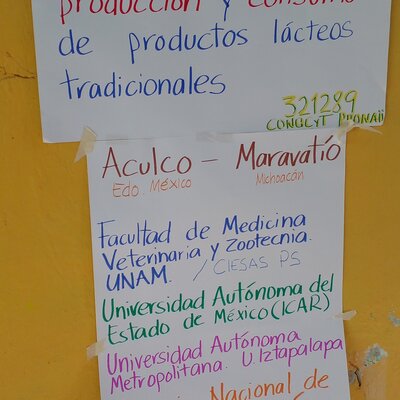 producción y consumo
de productos lácteos
tradicionales
321289
CONACYT PRONAII
Aculco - Maravatío
Edo. México Michoacán
Facultad de Medicina
Veterinaria y Zootecnia.
UNAM. / CIESAS PS
Universidad Autónoma del
Estado de México (ICAR)
Universidad Autónoma
Metropolitana. U. Iztapalapa
Nacional de